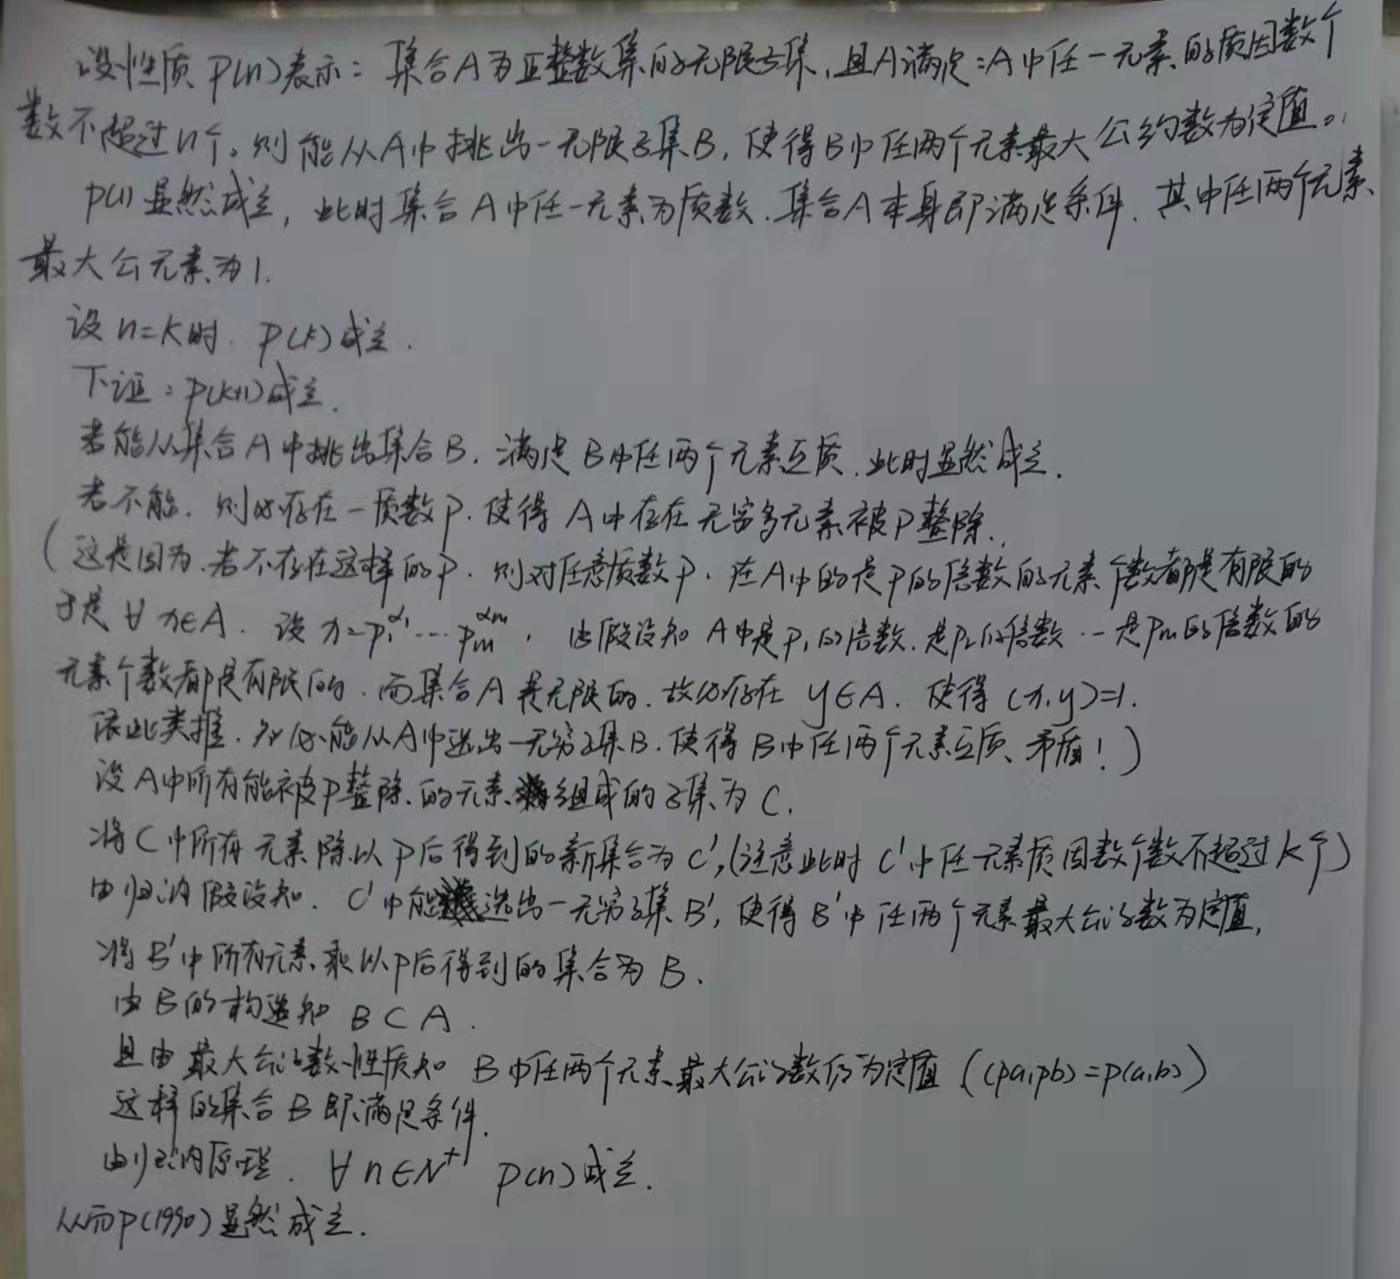 设性质 P(n)表示：集合A为正整数集的无限子集，且A满足：A中任一元素的质因数个
数不超过n个。则能从A中挑出一无限子集B，使得B中任两个元素最大公约数为定值。
P(1)显然成立，此时集合A中任一元素为质数．集合A本身即满足条件．其中任两个元素
最大公元素为1.
设n=k时．P(k)成立．
下证：P(k+1)成立．
若能从集合A中挑出集合B．满足B中任两个元素互质．此时显然成立．
若不能．则必存在一质数P．使得A中存在无穷多元素被P整除．
（这是因为．若不存在这样的P．则对任意质数P．在A中的是P的倍数的元素个数都是有限的
于是∀x∈A．设x=p₁^α₁…pₘ^αₘ，由假设知A中是p₁的倍数．是p₂的倍数…是pₘ的倍数的
元素个数都是有限的．而集合A是无限的．故必存在y∈A．使得(x,y)=1.
依此类推．必能从A中选出一无穷子集B．使得B中任两个元素互质、矛盾！）
设A中所有能被P整除的元素组成的子集为C.
将C中所有元素除以P后得到的新集合为C′,(注意此时C′中任一元素质因数个数不超过k个)
由归纳假设知．C′中能选出一无穷子集B′，使得B′中任两个元素最大公约数为定值，
将B′中所有元素乘以P后得到的集合为B．
由B的构造知 B⊂A．
且由最大公约数性质知 B中任两个元素最大公约数仍为定值（(pa,pb)=p(a,b)）
这样的集合B即满足条件．
由归纳原理．∀n∈N⁺ P(n)成立．
从而P(1990)显然成立．